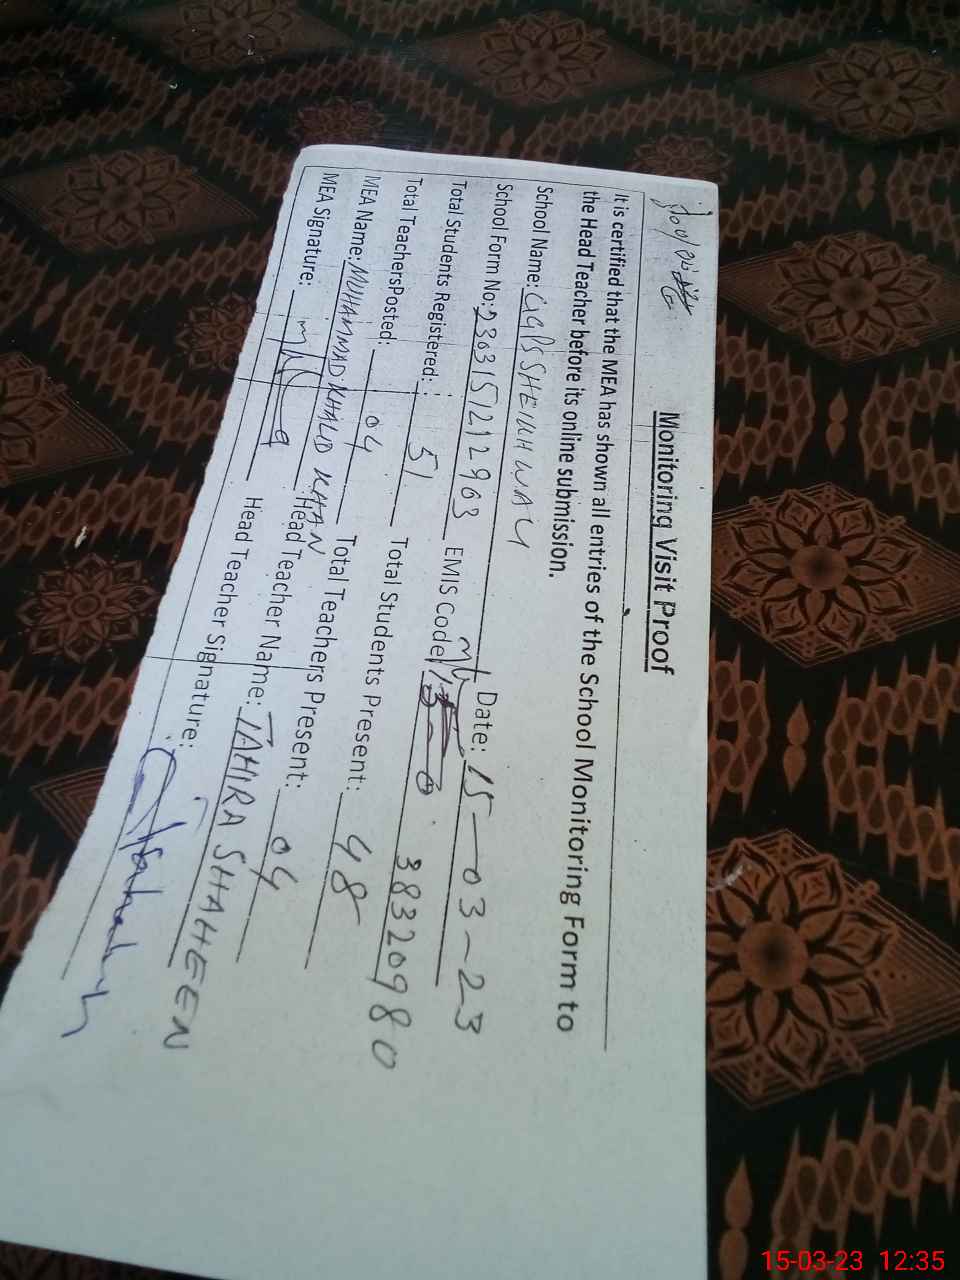 Monitoring Visit Proof
It is certified that the MEA has shown all entries of the School Monitoring Form to
the Head Teacher before its online submission.
School Name: GGPS SHEIKH WALI Date: 15-03-23
School Form No: 230315121963 EMIS Code 38320980
Total Students Registered: 51 Total Students Present: 48
Total TeachersPosted: 04 Total Teachers Present: 04
MEA Name: MUHAMMAD KHALID KHAN Head Teacher Name: TAHIRA SHAHEEN
MEA Signature: Head Teacher Signature:
15-03-23 12:35